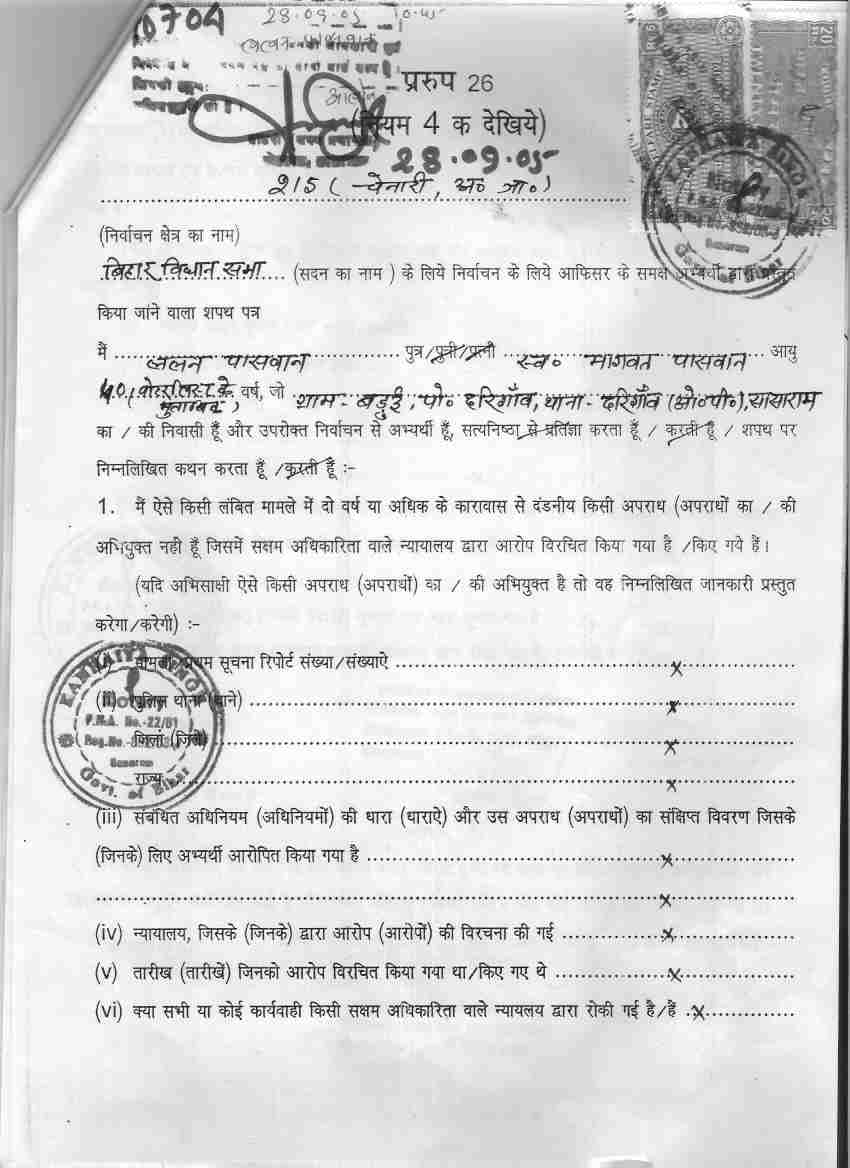 0704
28.09.05 10.45
प्ररुप 26
(नियम 4 क देखिये)
28.09.05
215 (चेनारी, अ० जा०)
(निर्वाचन क्षेत्र का नाम)
बिहार विधान सभा (सदन का नाम ) के लिये निर्वाचन के लिये आफिसर के समक्ष अभ्यर्थी द्वारा प्रस्तुत
किया जांने वाला शपथ पत्र
मैं ललन पासवान पुत्र/पुत्री/पत्नी स्व० भागवत पासवान आयु
40 (वोटर लिस्ट के मुताबिक) वर्ष, जो ग्राम- बड्डुई, पो० दरिगाँव, थाना- दरिगाँव (ओ०पी०), सासाराम
का / की निवासी हूँ और उपरोक्त निर्वाचन से अभ्यर्थी हूँ, सत्यनिष्ठा से प्रतिज्ञा करता हूँ / करती हूँ / शपथ पर
निम्नलिखित कथन करता हूँ /करती हूँ :-
1. मैं ऐसे किसी लंबित मामले में दो वर्ष या अधिक के कारावास से दंडनीय किसी अपराध (अपराधों का / की
अभियुक्त नही हूँ जिसमें सक्षम अधिकारिता वाले न्यायालय द्वारा आरोप विरचित किया गया है /किए गये हैं।
(यदि अभिसाक्षी ऐसे किसी अपराध (अपराधों) का / की अभियुक्त है तो वह निम्नलिखित जानकारी प्रस्तुत
करेगा/करेगी) :-
(i) मामला/प्रथम सूचना रिपोर्ट संख्या/संख्याऐ x
(ii) पुलिस थाना (थाने) x
जिला (जिले) x
राज्य x
(iii) संबंधित अधिनियम (अधिनियमों) की धारा (धाराऐ) और उस अपराध (अपराधों) का संक्षिप्त विवरण जिसके
(जिनके) लिए अभ्यर्थी आरोपित किया गया है x
x
(iv) न्यायालय, जिसके (जिनके) द्वारा आरोप (आरोपों) की विरचना की गई x
(v) तारीख (तारीखें) जिनको आरोप विरचित किया गया था/किए गए थे x
(vi) क्या सभी या कोई कार्यवाही किसी सक्षम अधिकारिता वाले न्यायलय द्वारा रोकी गई है/हैं x
KANHAIYA SINGH
Notary
Reg.No.
Sasaram
Govt. of Bihar